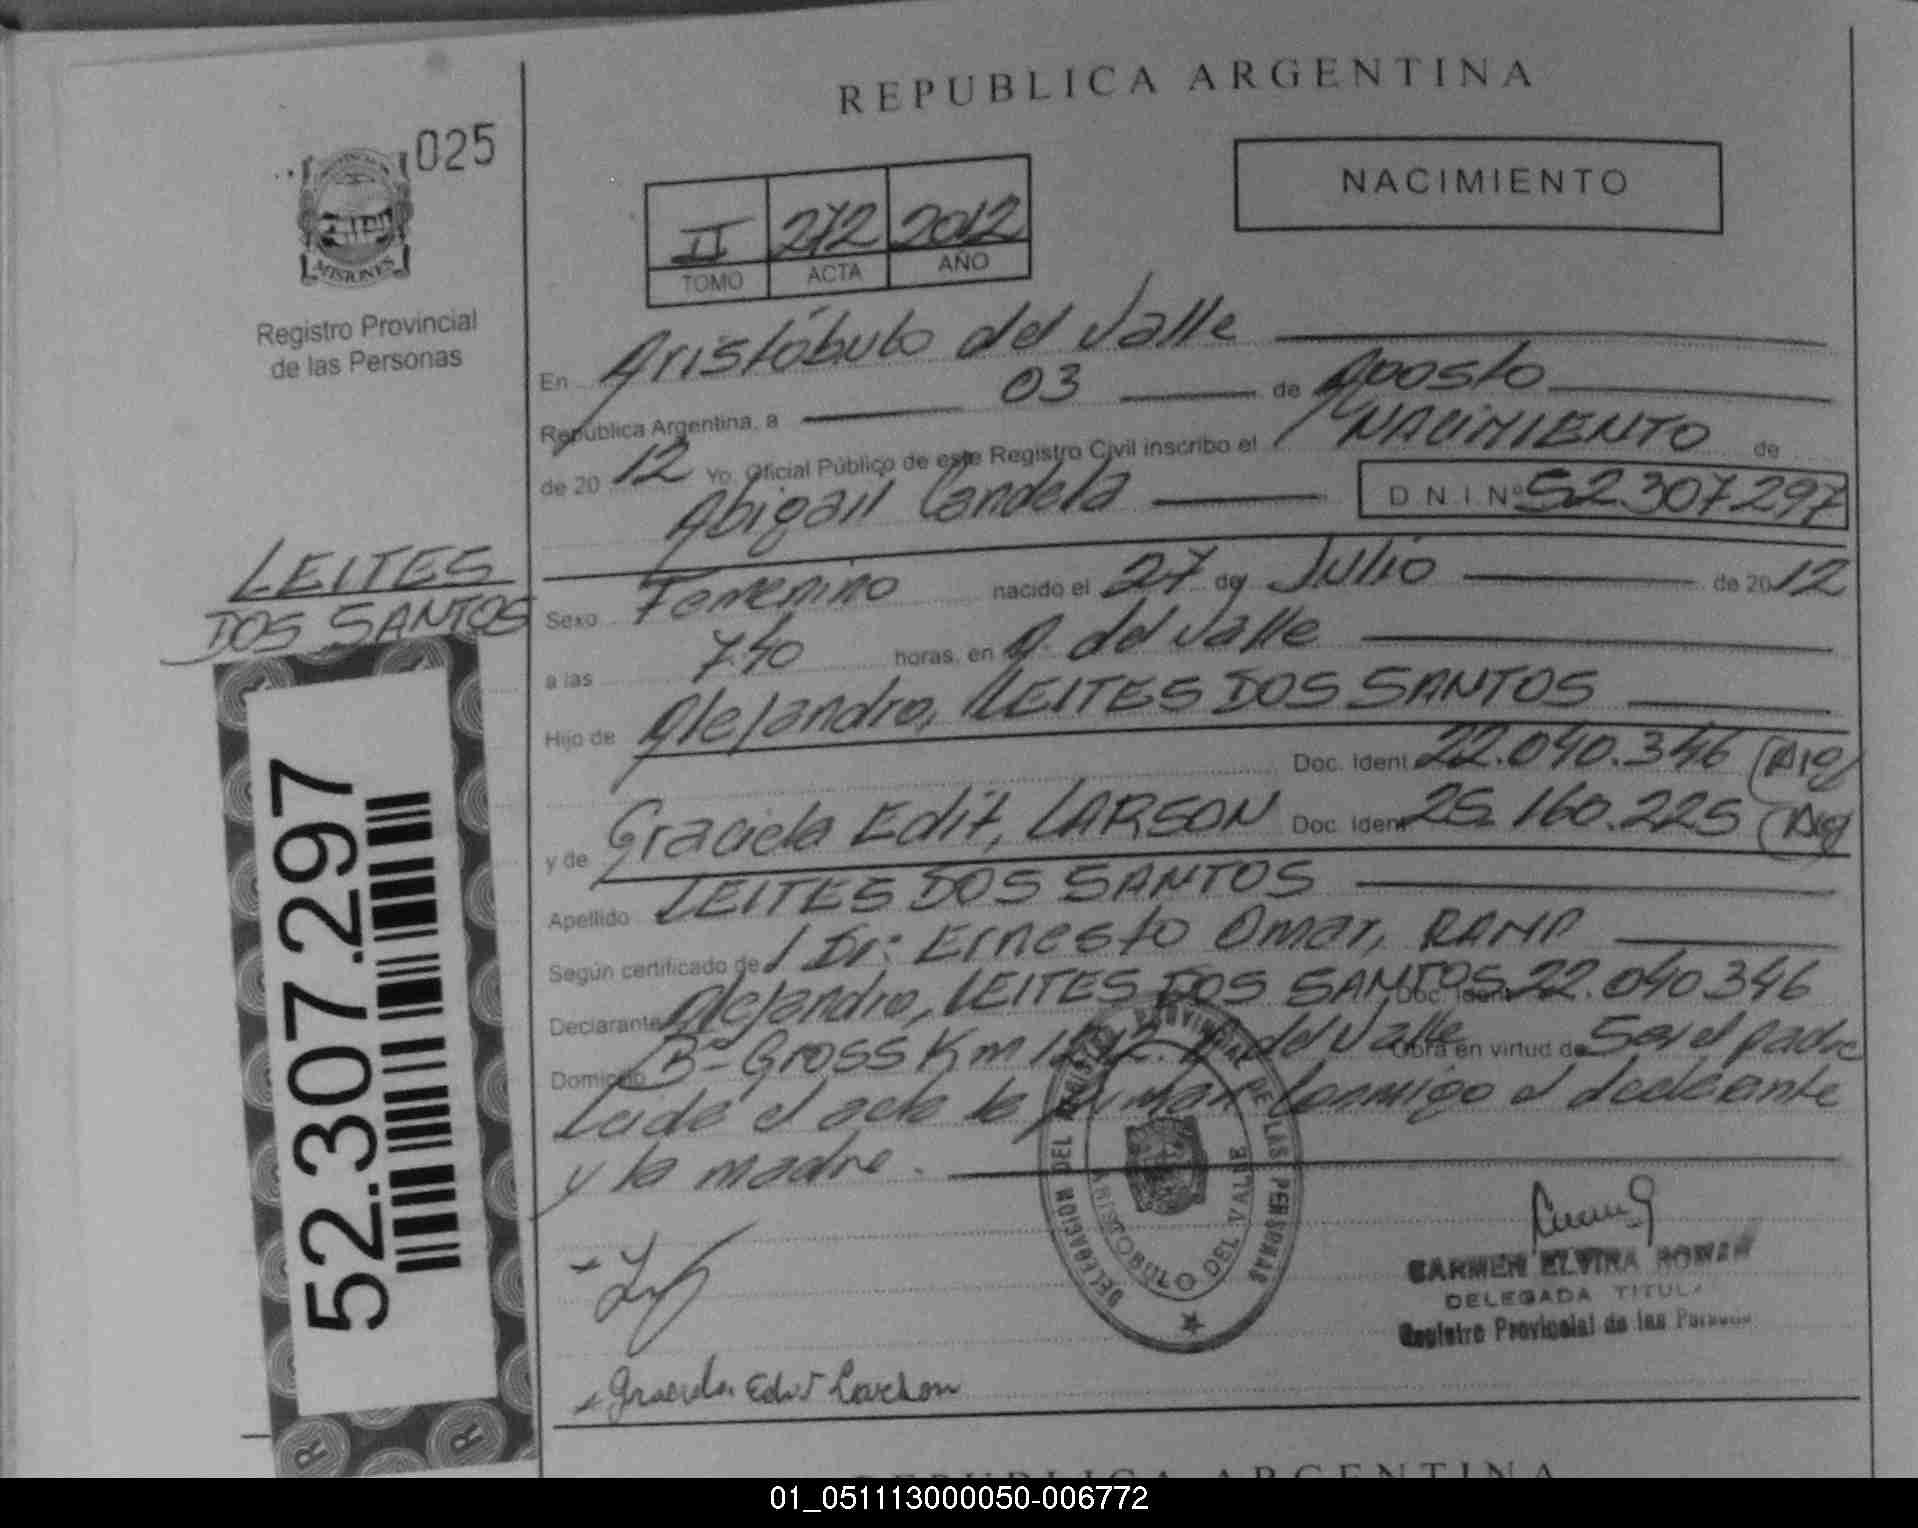 REPUBLICA ARGENTINA
025
NACIMIENTO
II 272 2012
TOMO ACTA AÑO
MISIONES
Registro Provincial
de las Personas
En Aristóbulo del Valle
República Argentina, a 03 de Agosto
de 20 12 Yo, Oficial Público de este Registro Civil inscribo el NACIMIENTO de
Abigail Candela D N I Nº 52307297
LEITES
DOS SANTOS
Sexo Femenino nacido el 27 de Julio de 20 12
a las 7.40 horas, en A. del Valle
Hijo de Alejandro, LEITES DOS SANTOS
Doc. Ident 22.040.346 (Arg)
y de Graciela Edit, LARSON Doc. Ident 25.160.225 (Arg)
Apellido LEITES DOS SANTOS
Según certificado de Dr: Ernesto Omar,
Declarante Alejandro, LEITES DOS SANTOS Doc. Ident 22.040.346
Domicilio Bº Gross Km A. del Valle Obra en virtud de Ser el padre
Leida el acta la firman conmigo el declarante
y la madre.
52.307.297
DELEGACION DEL REGISTRO PROVINCIAL DE LAS PERSONAS
ARISTOBULO DEL VALLE
CARMEN ELVIRA ROMAN
DELEGADA TITUL
Registro Provincial de las Personas
Graciela Edit Larson
R R
REPUBLICA ARGENTINA
01_051113000050-006772